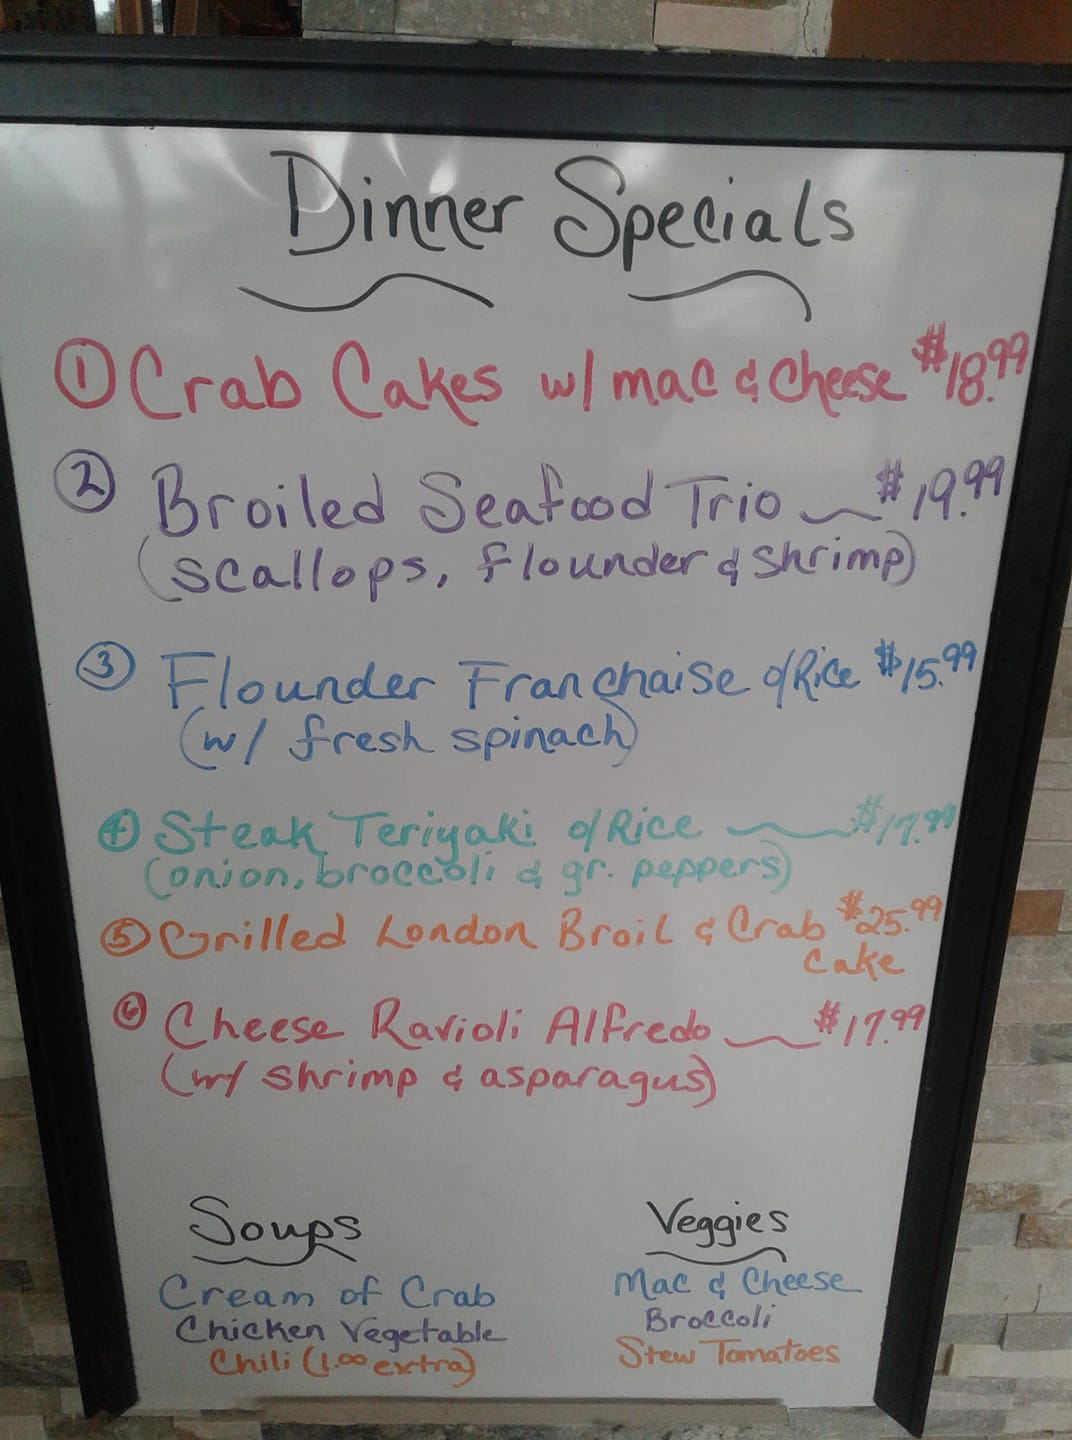 Dinner Specials
① Crab Cakes w/ mac & Cheese $18.99
② Broiled Seafood Trio $19.99
(scallops, flounder & shrimp)
③ Flounder Franchaise o/Rice $15.99
(w/ fresh spinach)
④ Steak Teriyaki o/Rice $17.99
(onion, broccoli & gr. peppers)
⑤ Grilled London Broil & Crab $25.99
Cake
⑥ Cheese Ravioli Alfredo $17.99
(w/ shrimp & asparagus)
Soups
Cream of Crab
Chicken Vegetable
Chili (1.00 extra)
Veggies
Mac & Cheese
Broccoli
Stew Tomatoes